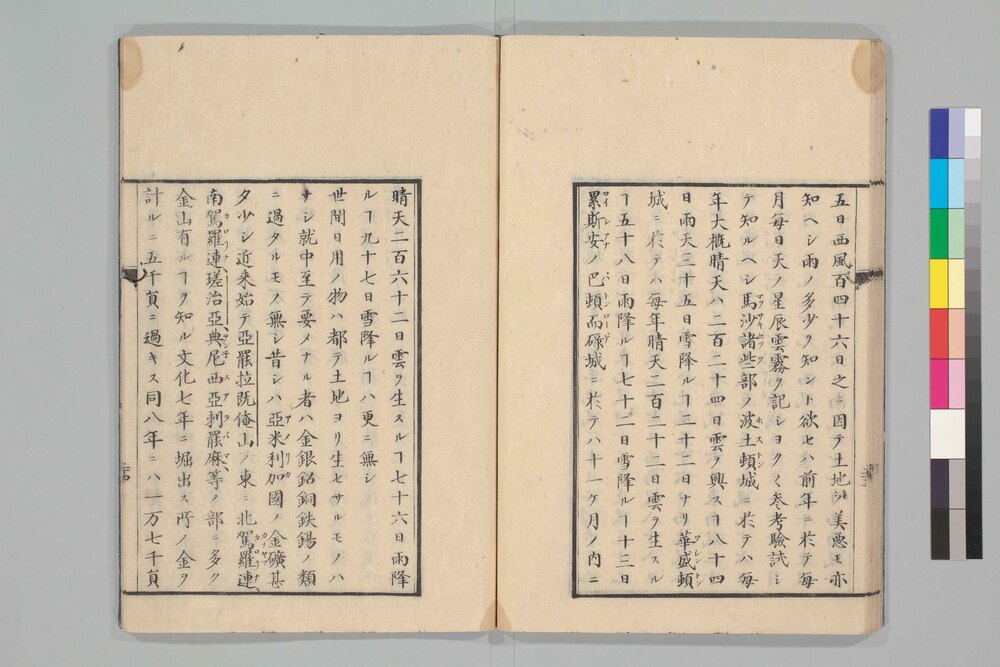 五日西風百四十六日之ニ因テ土地ノ美悪モ亦
知ヘシ雨ノ多少ヲ知ント欲セハ前年ニ於テ毎
月毎日天ノ星辰雲霧ヲ記シヨク〱参考驗試シ
テ知ルヘシ馬沙諸些部ノ波土頓城ニ於テハ毎
年大概晴天ハ二百二十四日雲ヲ興スヿ八十四
日雨天三十五日雪降ルヿ二十二日ナリ華盛頓
城ニ於テハ毎年晴天二百二十二日雲ヲ生スル
ヿ五十八日雨降ルヿ七十二日雪降ルヿ十三日
累斯安ノ巴頓而碌城ニ於テハ十一ケ月ノ内ニ
晴天二百六十二日雲ヲ生スルヿ七十六日雨降
ルヿ九十七日雪降ルヿハ更ニ無シ
世間日用ノ物ハ都テ土地ヨリ生セサルモノハ
ナシ就中至テ要メナル者ハ金銀鉛銅鉄錫ノ類
ニ過タルモノ無シ昔シハ亞米利加國ノ金礦甚
タ少シ近来始テ亞罷拉既俺山ノ東ニ北駕羅連
南駕羅連瑳治亞典尼西亞剌罷麻等ノ部ニ多ク
金山有ルヿヲ知ル文化七年ニ堀出ス所ノ金ヲ
計ルニ五千員ニ過キス同八年ニハ一万七千員